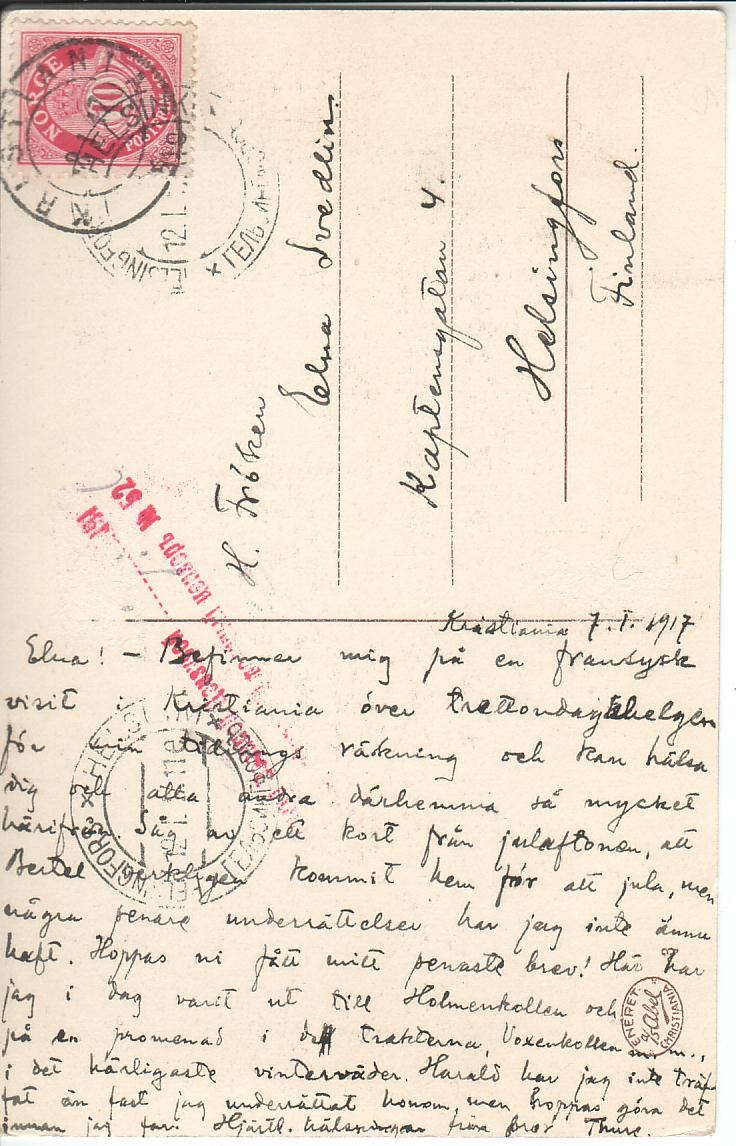 NORGE
10
POSTFRIM
KRISTIANIA
HELSINGFORS
12.I.
ГЕЛЬСИНГФОРСЪ
H. Fröken
Elna Svedlin.
Kaptensgatan 4.
Helsingfors
Finland.
191
№ 52
Kristiania 7.I.1917
Elna! – Befinner mig på en fransysk
visit i Kristiania över trettondagshelgen
för min tidnings räkning och kan hälsa
dig och alla andra därhemma så mycket
härifrån. Såg av ett kort från julaftonen, att
Bertel verkligen kommit hem för att jula, men
några senare underrättelser har jag inte ännu
haft. Hoppas ni fått mitt senaste brev! Här har
jag i dag varit ut till Holmenkollen och
på en promenad i de trakterna, Voxenkollen m.m.,
i det härligaste vinterväder. Harald har jag inte träf-
fat än fast jag underrättat honom, men hoppas göra det
innan jag far. Hjärtl. hälsningar från bror Thure.
HELSINGFORS
12.I.
ENERET
CHRISTIANIA